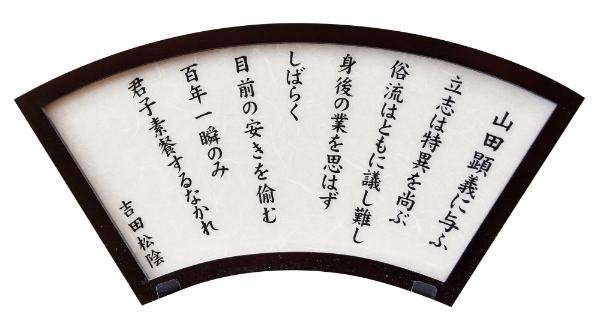 山田顕義に与ふ
立志は特異を尚ぶ
俗流はともに議し難し
身後の業を思はず
しばらく
目前の安きを偷む
百年一瞬のみ
君子素餐するなかれ
吉田松陰